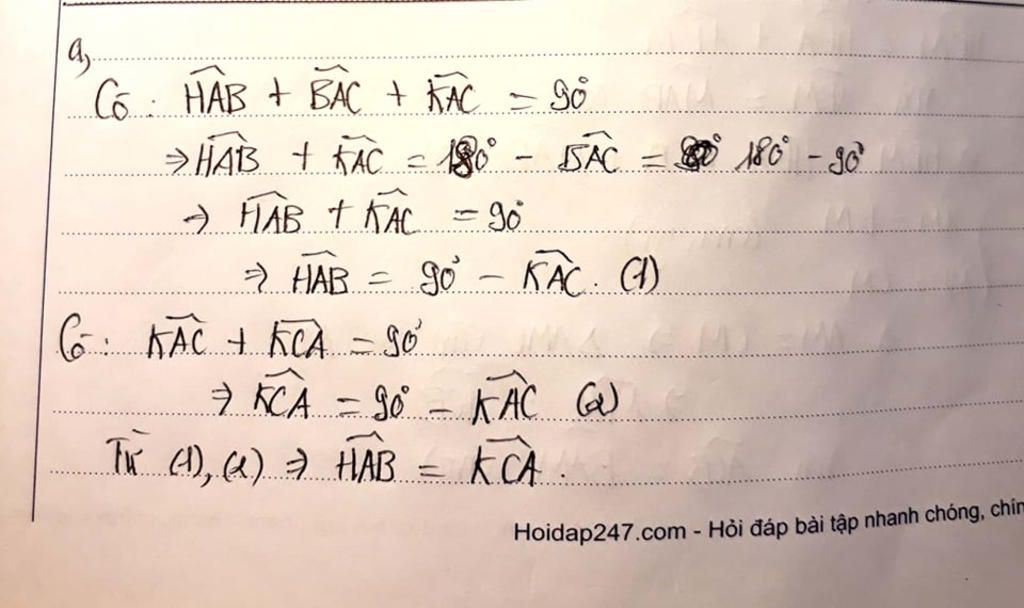 a,
Có : HAB + BAC + KAC = 90°
⇒ HAB + KAC = 180° - BAC = 180° - 90°
→ HAB + KAC = 90°
⇒ HAB = 90° - KAC. (1)
Có : KAC + KCA = 90°
⇒ KCA = 90° - KAC (2)
Từ (1), (2) ⇒ HAB = KCA.
Hoidap247.com - Hỏi đáp bài tập nhanh chóng, chín